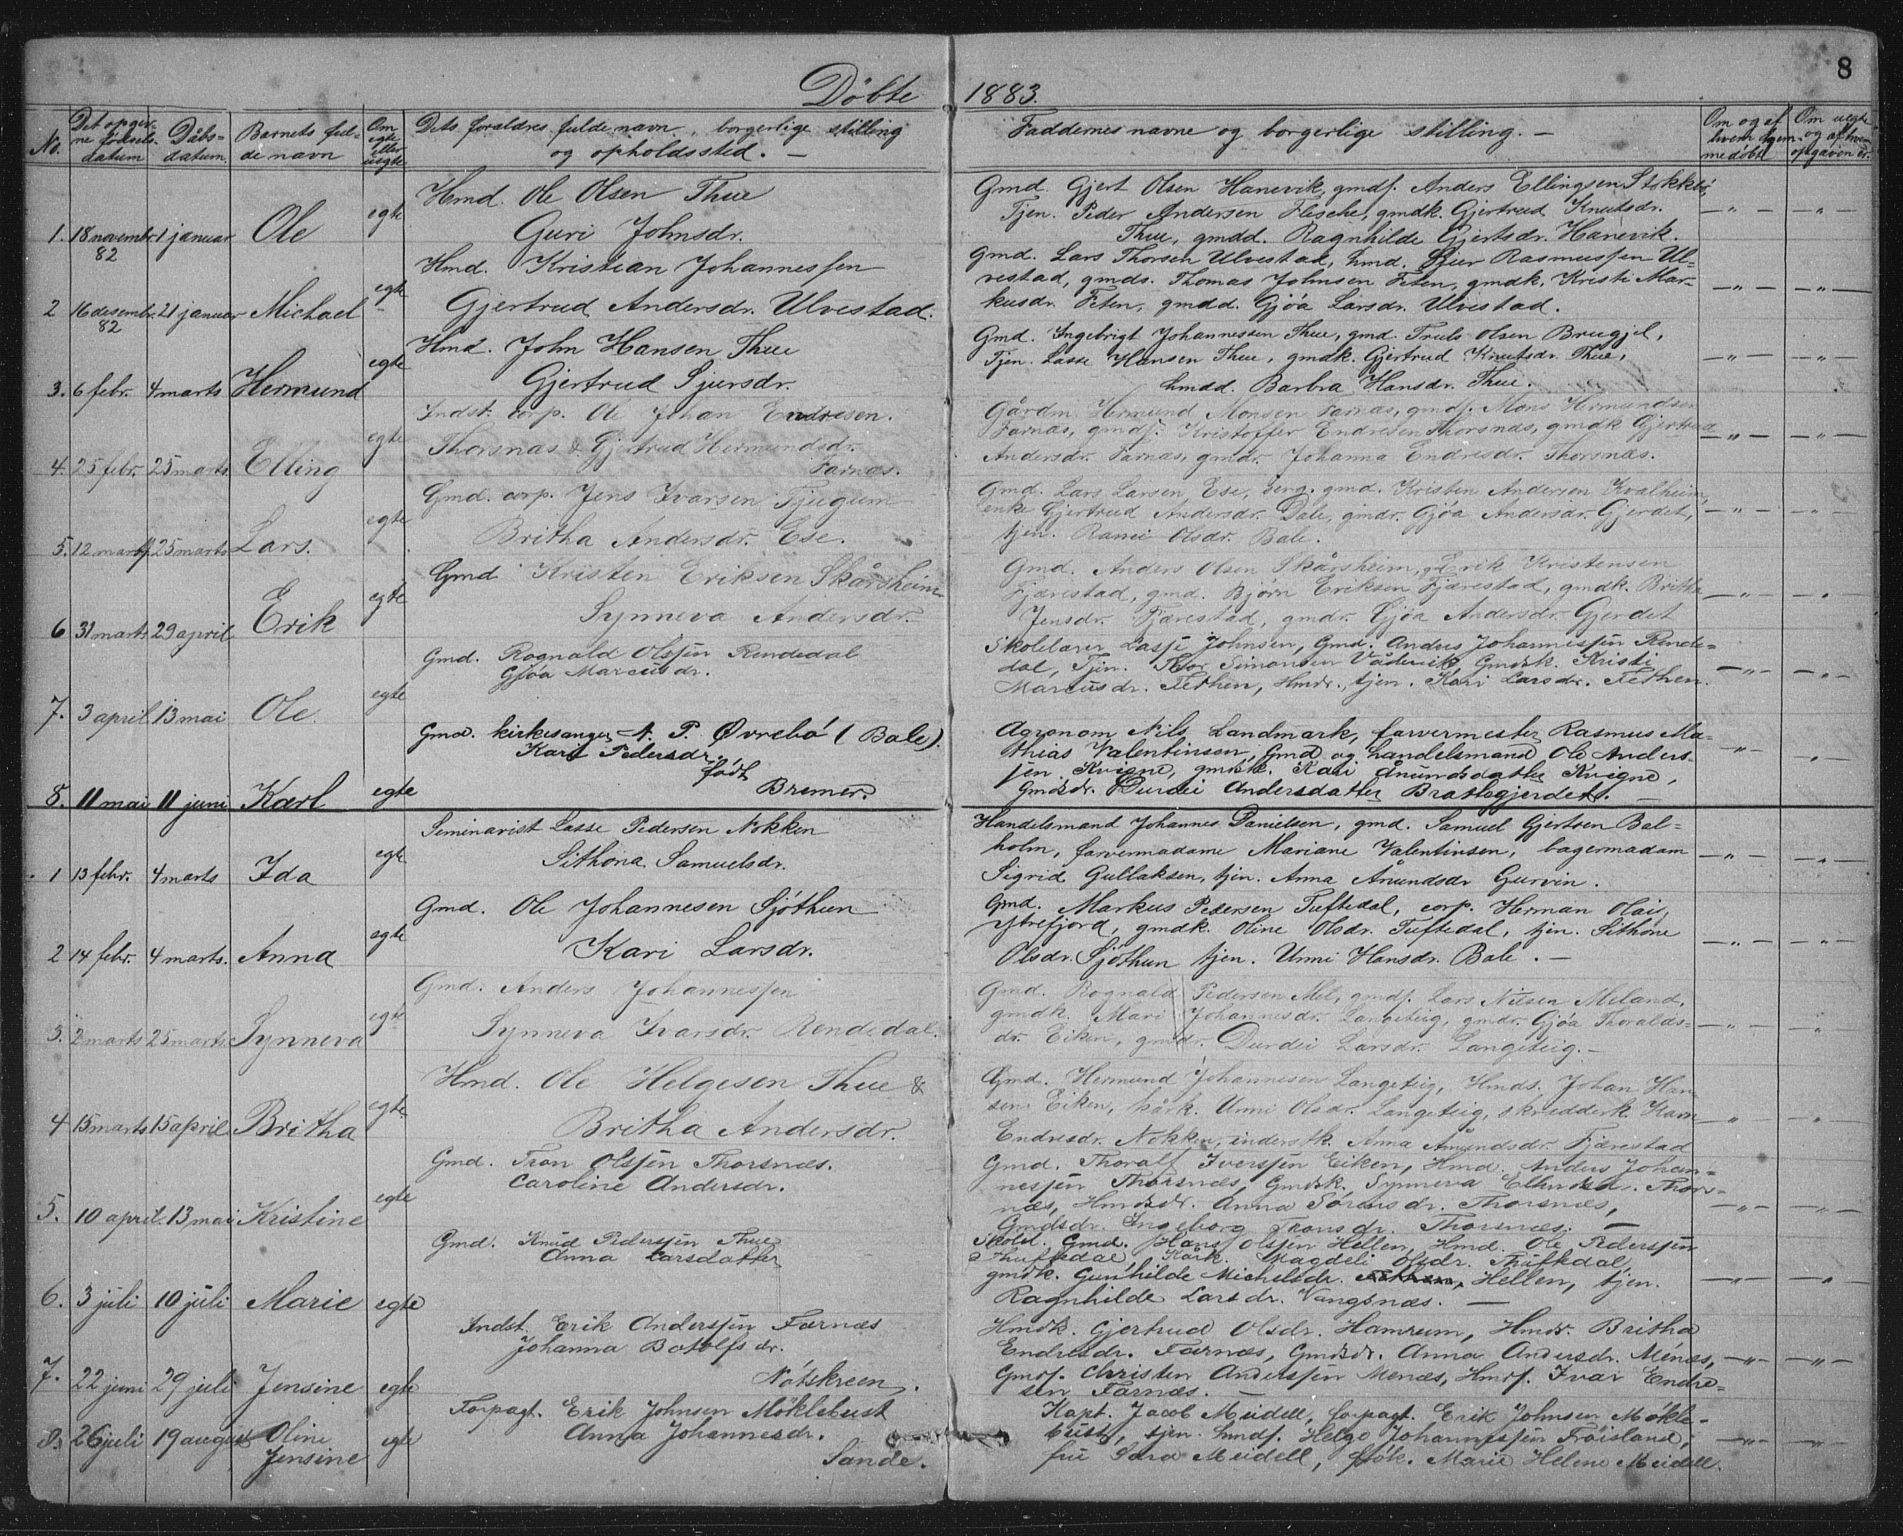 Döbte 1883.
8
No. Det opgivne födselsdatum Dåbsdatum. Barnets fulde navn Om egte eller uegte Dets foraldres fulde navn, borgerlige stilling og opholdssted. — Faddernes navne og borgerlige stilling. — Om og af hvem hjemmedöbt Om uegte og af hvem opgaven er.
Hmd. Ole Olsen Thue
Guri Johnsdr.
1. 18 novembr. 82 1 januar Ole egte
Gmd. Gjert Olsen Hanevik, gmdf. Anders Ellingsen Stokkebö,
Tjen. Peder Andersen Flesche, gmdk. Gjertrud Knutsdr.
Thue, gmdd. Ragnhilde Gjertsdr. Hanevik.
Hmd. Kristian Johannessen
Gjertrud Andersdr. Ulvestad.
2 16 desembr. 82 21 januar Michael egte
Gmd. Lars Thorsen Ulvestad, hmd. Rasmussen Ul-
vestad, gmds. Thomas Johnsen Feten, gmdk. Kristi Mar-
kusdr. Feten, gmdd. Gjöa Larsdr. Ulvestad.
Hmd. John Hansen Thue
Gjertrud Sjursdr.
3. 6 febr. 4 marts Hermund egte
Gmd. Ingebrigt Johannessen Thue, gmd. Truls Olsen Brugjel,
Tjen. Lasse Hansen Thue, gmdk. Gjertrud Knutsdr. Thue,
hmdd. Barbra Hansdr. Thue.
Indst. corp. Ole Johan Endresen.
Thorsnæs & Gjertrud Hermundsdr.
Farnæs.
4. 25 febr. 25 marts. Elling egte
Gårdm. Hermund Monsen Farnæs, gmdf. Mons Hermundsen
Farnæs, gmdf. Kristoffer Endresen Thorsnæs, gmdk Gjertrud
Andersdr. Farnæs, gmdr. Johanna Endresdr. Thorsnæs.
Gmd. corp. Jens Ivarsen Tjugum
Britha Andersdr. Ese.
5. 12 marts 25 marts Lars. egte
Gmd. Lars Larsen Ese, gmd. Kristen Andersen Kvalheim,
enke Gjertrud Andersdr. Dale, gmdr. Gjöa Andersdr. Gjerdet,
tjen. Olsdr. Bale.
Gmd. Kristen Eriksen Skårsheim
Synneva Andersdr.
6 31 marts 29 april Erik egte
Gmd. Anders Olsen Skårsheim, Erik Kristensen
Fjærestad, gmd. Björn Eriksen Fjærestad, gmdk. Britha
Jensdr. Fjærestad, gmdr. Gjöa Andersdr. Gjerdet
Gmd. Rognald Olsen Rendedal
Gjöa Marcusdr.
7. 3 april 13 mai Ole. egte
Skolelærer Lasse Johnsen, Gmd. Anders Johannessen Rende-
dal, Tjen. Simonsen Vådevik, Gmdsk. Kristi
Marcusdr. Fethen, Hmdr. tjen. Kari Larsdr. Fethen.
Gmd. kirkesanger N. P. Övrebö (Bale).
Kari Pedersdr.
födt
Bremer.
8. 11 mai 11 juni Karl egte
Agronom Nils Landmark, farvermester Rasmus Ma-
thias Valentinsen, Gmd og handelsmand Ole Anders-
sen Kvigne, gmdsk. Kari Ånundsdatter Kvigne,
Gmdsdr. Durdei Andersdatter Brattegjerdet. —
Seminarist Lasse Pedersen Nökken
Sithona Samuelsdr.
1 13 febr. 4 marts Ida egte
Handelsmand Johannes Danielsen, gmd. Samuel Gjertsen Bal-
holm, farvermadame Mariane Valentinsen, bagermadam
Sigrid Gullaksen, tjen. Anna Ånundsdr Gurvin.
Gmd. Ole Johannesen Sjöthun
Kari Larsdr.
2 14 febr. 4 marts. Anna egte
Gmd. Markus Pedersen Tuftedal, corp. Herman Olai,
Ytrefjord, gmdk. Oline Olsdr. Tuftedal, tjen. Sithone
Olsdr. Sjöthun tjen. Unni Hansdr. Bale. —
Gmd. Anders Johannessen
Synneva Ivarsdr. Rendedal.
3. 2 marts 25 marts Synneva egte
Gmd. Rognald Pedersen Mel, gmdf. Lars Nilsen Meland,
gmdk. Mari Johannesdr. Langeteig, gmdr. Gjöa Thoralds-
dr. Eiken, gmdr. Durdei Larsdr. Langeteig. —
Hmd. Ole Helgesen Thue &
Britha Andersdr.
4 13 marts 15 april Britha egte
Gmd. Hermund Johannesen Langeteig, Hmds. Johan Han-
sen Eiken, kårk. Unni Olsdr. Langeteig, skredderk Kari
Endresdr. Nökken, inderstk. Anna Åmundsdr. Fjærestad
Gmd. Tron Olssen Thorsnæs.
Caroline Andersdr.
5. 10 april. 13 mai Kristine egte
Gmd. Thoralf Iverssen Eiken, Hmd. Anders Johan-
nessen Thorsnæs, Gmdsk. Synneva Thors-
næs, Hmdsdr. Anna Sörensdr. Thorsnæs,
Gmdsdr. Ingeborg Tronsdr. Thorsnæs. —
Gmd. Knud Pedersen Thue
Anna Larsdatter
6. 3 juli 10 juli Marie egte
Skolel. Gmd. Hans Olsen Hellen, Hmd. Ole Pedersen
Thuftedal, Kårk. Magdeli Olsdr. Thuftedal,
gmdk. Gunhilde Michelsdr. Hellen, tjen.
Ragnhilde Larsdr. Vangsnæs. —
Indst. Erik Andersen Farnæs
Johanna Botolfsdr.
Nötskreen.
7. 22 juni 29 juli Jensine egte
Hmdk. Gjertrud Olsdr. Hamrum, Hmdr. Britha
Endresdr. Farnæs, Gmdsdr. Anna Andersdr. Menæs,
Gmdf. Christen Anderssen Menæs, Hmdf. Ivar Endre-
sen Farnæs. —
Forpagt. Erik Johnsen Möklebust
Anna Johannesdr.
Sande.
8. 26 juli 19 august Oline Jensine egte
Kapt. Jacob Meidell, forpagt. Erik Johnsen Mökle-
bust, tjen. hmdf. Helge Johannessen Fröisland,
frue Sara Meidell, frök. Marie Helene Meidell.